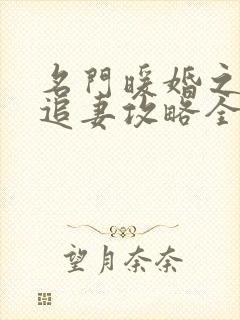 名門暖婚之
追妻攻略全
望月奈奈